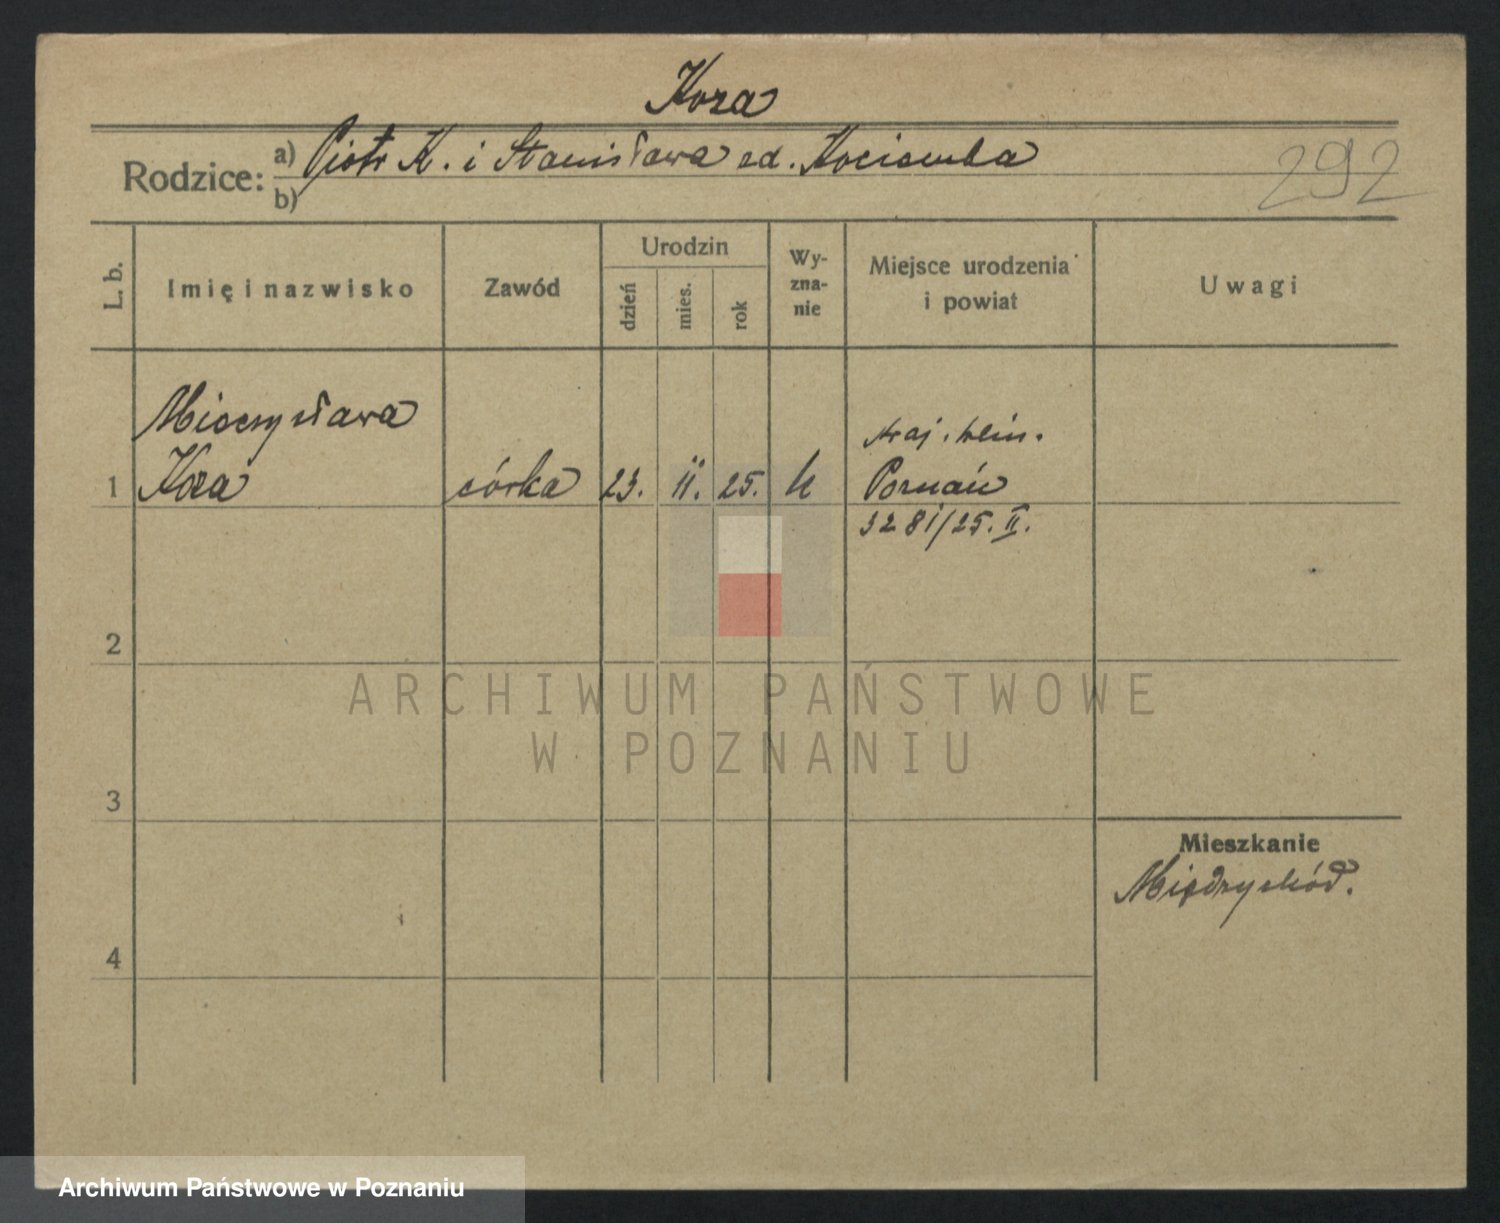 Koza
Rodzice: a) Piotr K. i Stanisława zd. Kociemba
b)
292
L. b. Imię i nazwisko Zawód Urodzin dzień mies. rok Wy-zna-nie Miejsce urodzenia i powiat Uwagi
Mieczysława
Kraj. klin.
1 Koza córka 23. II. 25. k Poznań
3281/25. II.
2
ARCHIWUM PAŃSTWOWE
W POZNANIU
3
Mieszkanie
Międzychód.
4
Archiwum Państwowe w Poznaniu